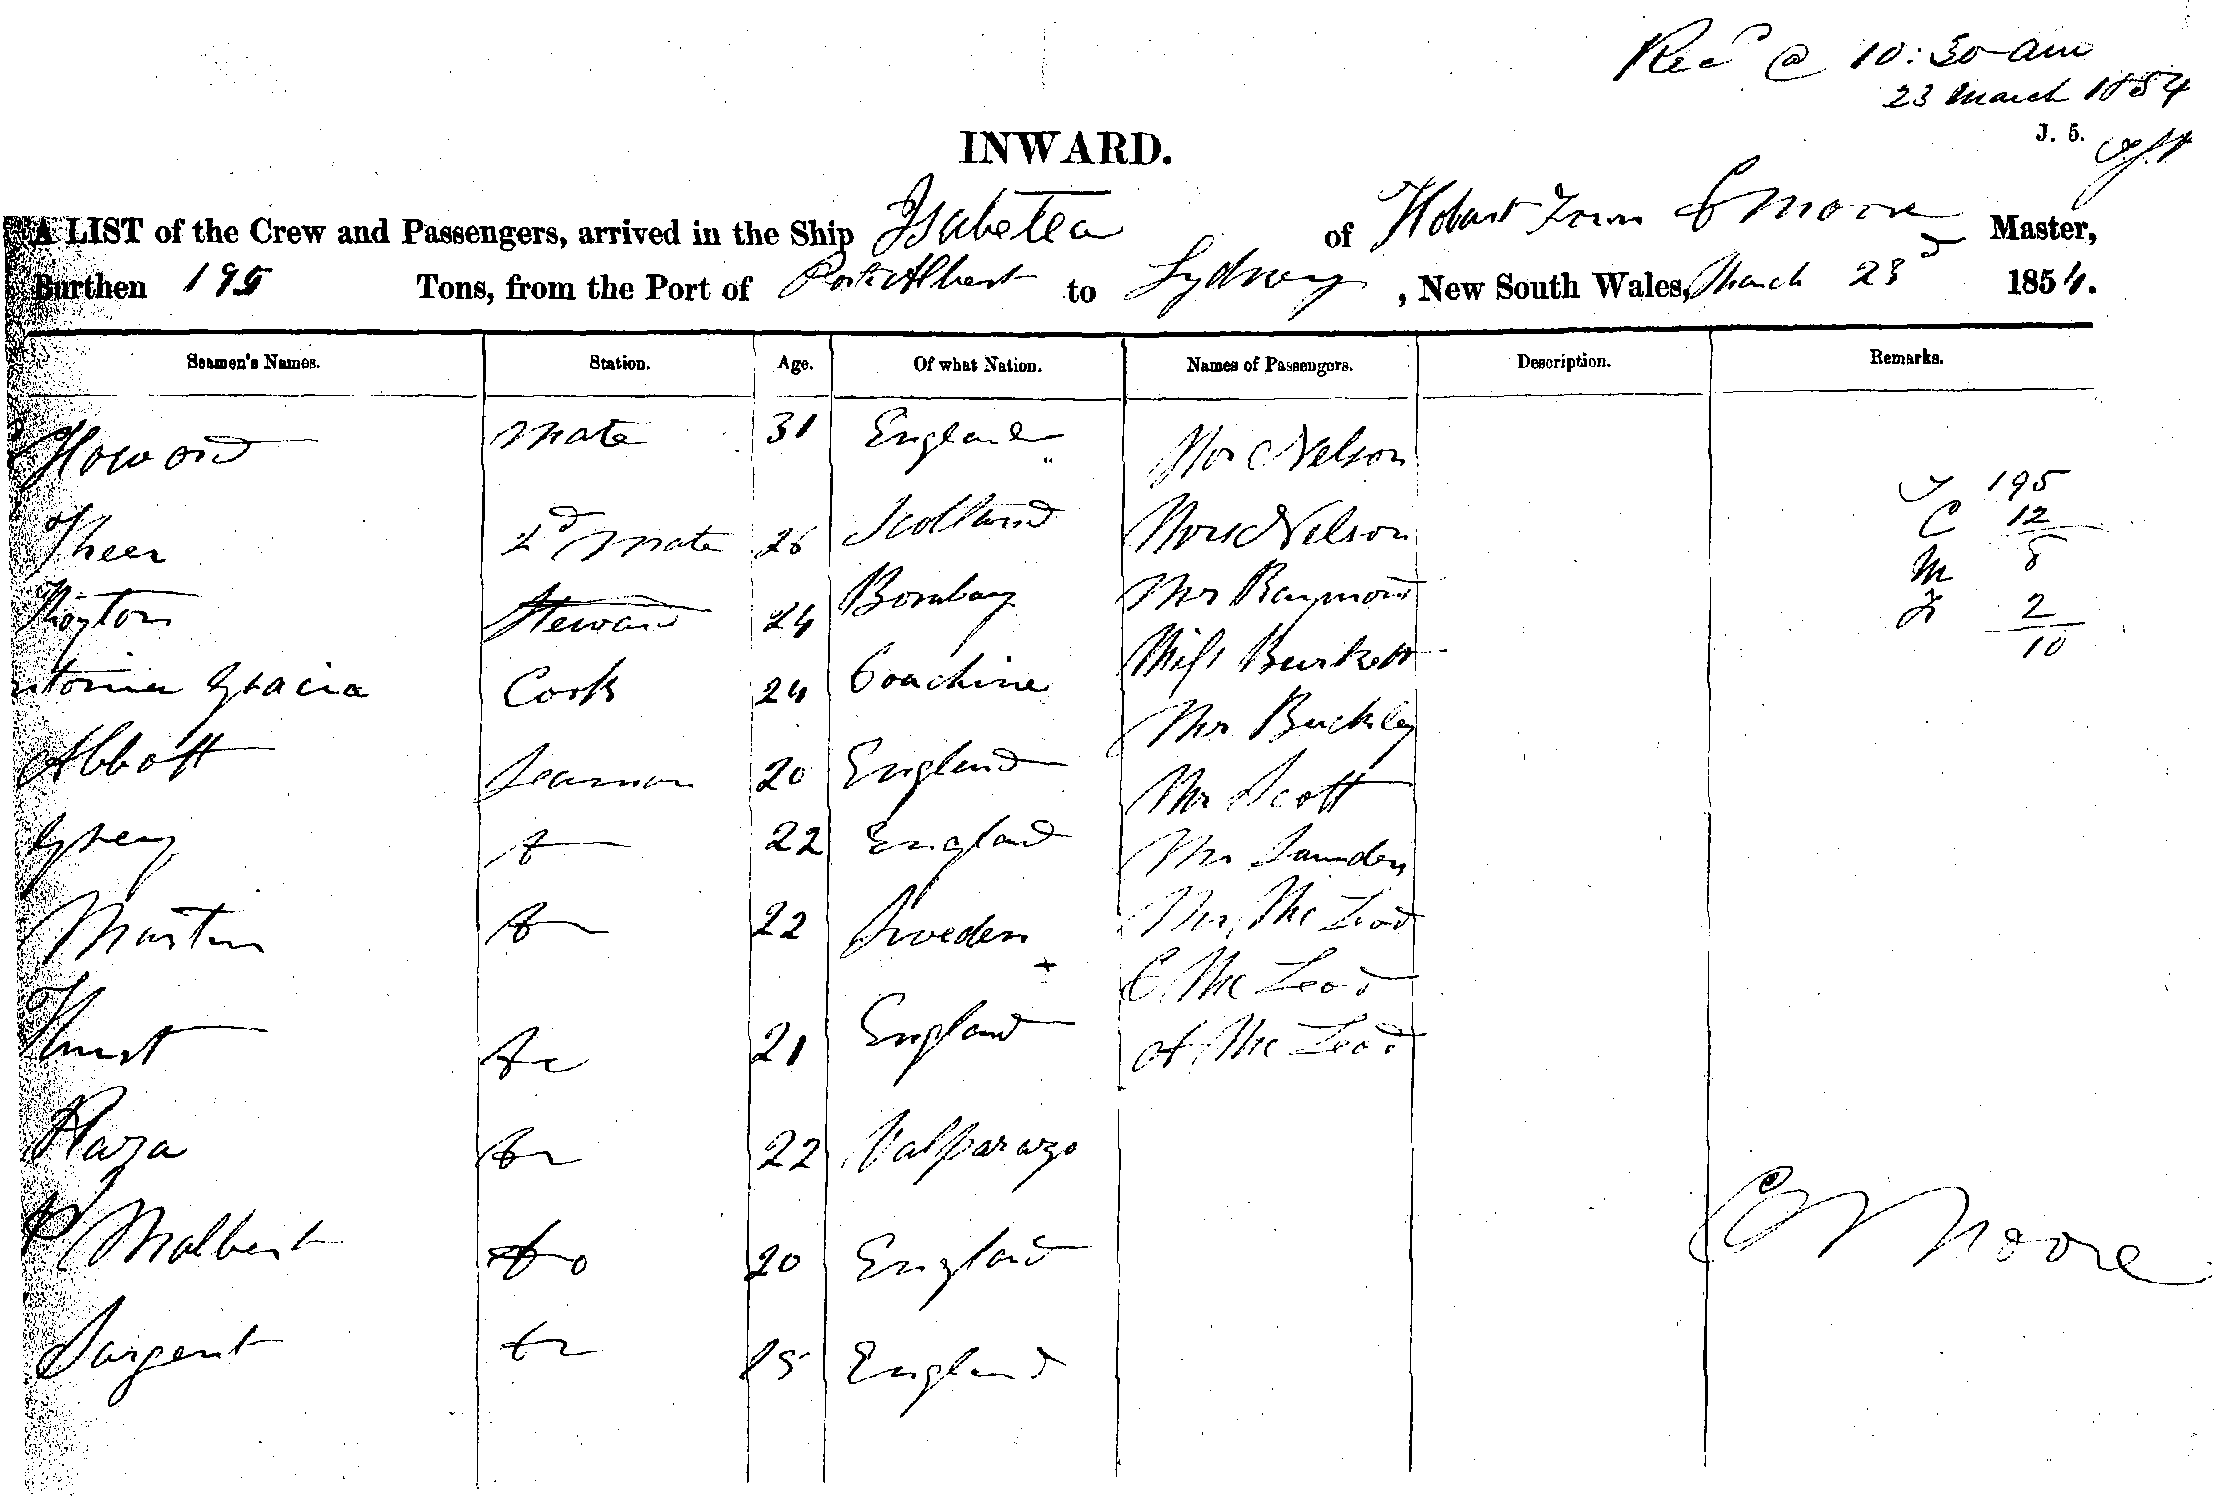 Recd @ 10:30 am
23 March 1854
J. 5.
INWARD.
A LIST of the Crew and Passengers, arrived in the Ship Isabella of Hobart Town C Moore Master,
Burthen 195 Tons, from the Port of Port Albert to Sydney, New South Wales, March 23d 1854.
Seamen's Names. Station. Age. Of what Nation. Names of Passengers. Description. Remarks.
Howard Mate 31 England Mr Nelson
T 195
2d Mate 26 Scotland Mrs Nelson
C 12
M 8
Steward 24 Bombay Mr Raymond
F 2
10
Gracia Cook 24 Coachine Miss Burkett
Mr Buckley
Abbott Seaman 20 England Mr Scott
Grey Do 22 England Mr Saunders
Martin Do 22 Sweden Mr Mc Leod
C. Mc Leod
Hurst Do 21 England A Mc Leod
Plaza Do 22 Valparazo
Malbert Do 20 England
C Moore
Sargent Do 25 England